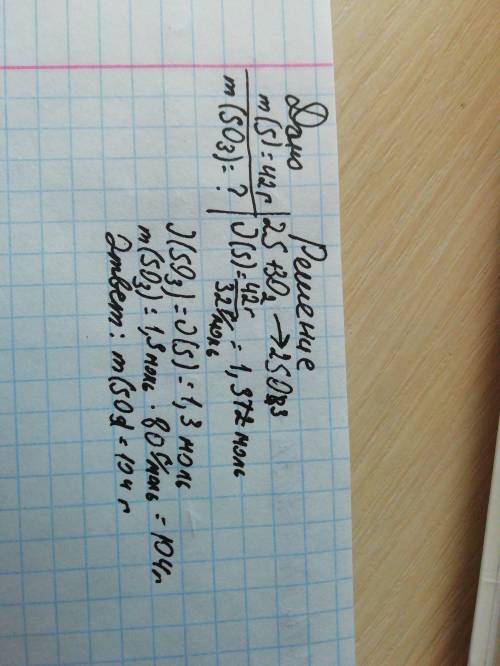 Дано
m(S)=42г
m(SO3)=?
Решение
2S+3O2→2SO3
ν(S)=42г/32г/моль=1,312 моль
ν(SO3)=ν(S)=1,3 моль
m(SO3)=1,3 моль·80г/моль=104г
Ответ: m(SO3)=104г